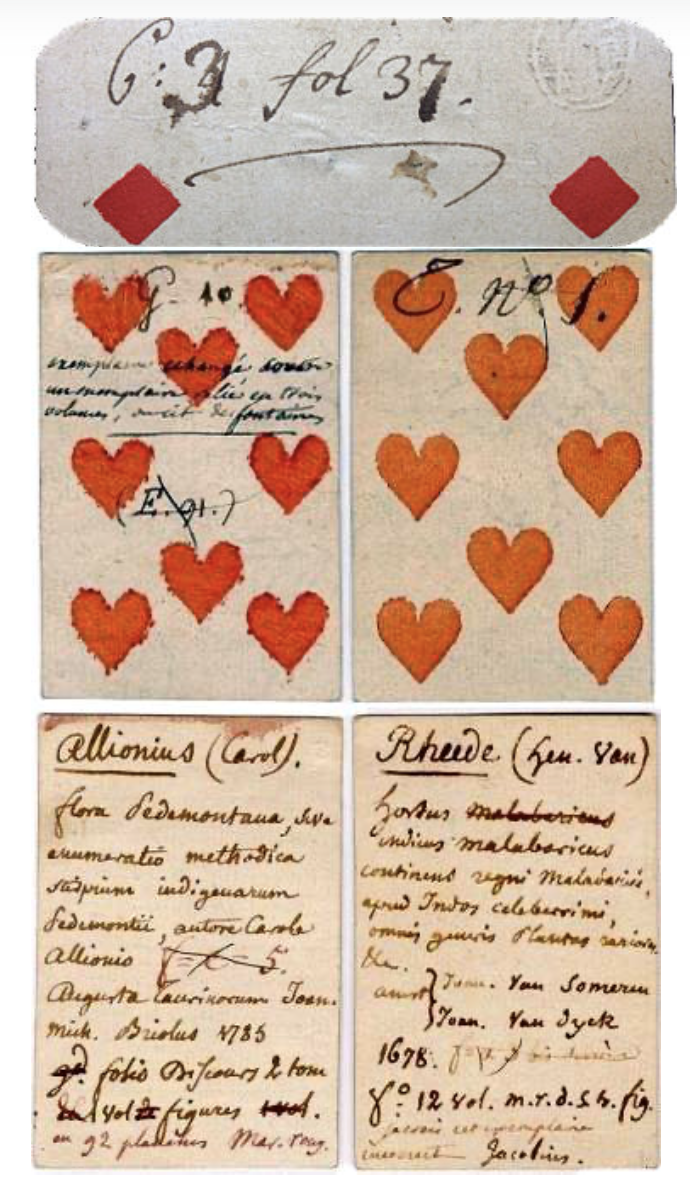 C: 3 fol 37.
G. 10.
exemplaire échangé contre
un exemplaire relié en trois
volumes, du cit. desfontaines
(E. 91.)
C. N° 1.
Allionius (Carol).
flora Pedemontana, sive
enumeratio methodica
stirpium indigenarum
Pedemontii, autore Carolo
Allionio 5.
Augusta Taurinorum Joan.
Mich. Briolus 1785
gd. folio Discours 2 tom
1 vol figures 1 vol.
en 92 planches Mar. roug.
Rheede (hen. Van)
hortus malabaricus
indicus malabaricus
continens regni Malabarici,
apud Indos celeberrimi,
omnis generis Plantas rarior.
&a.
Joan. Van Someren
Joan. Van Dyck
1678.
f° 12 vol. m.r.d.s.tr. fig.
exemplaire
Jacobins.